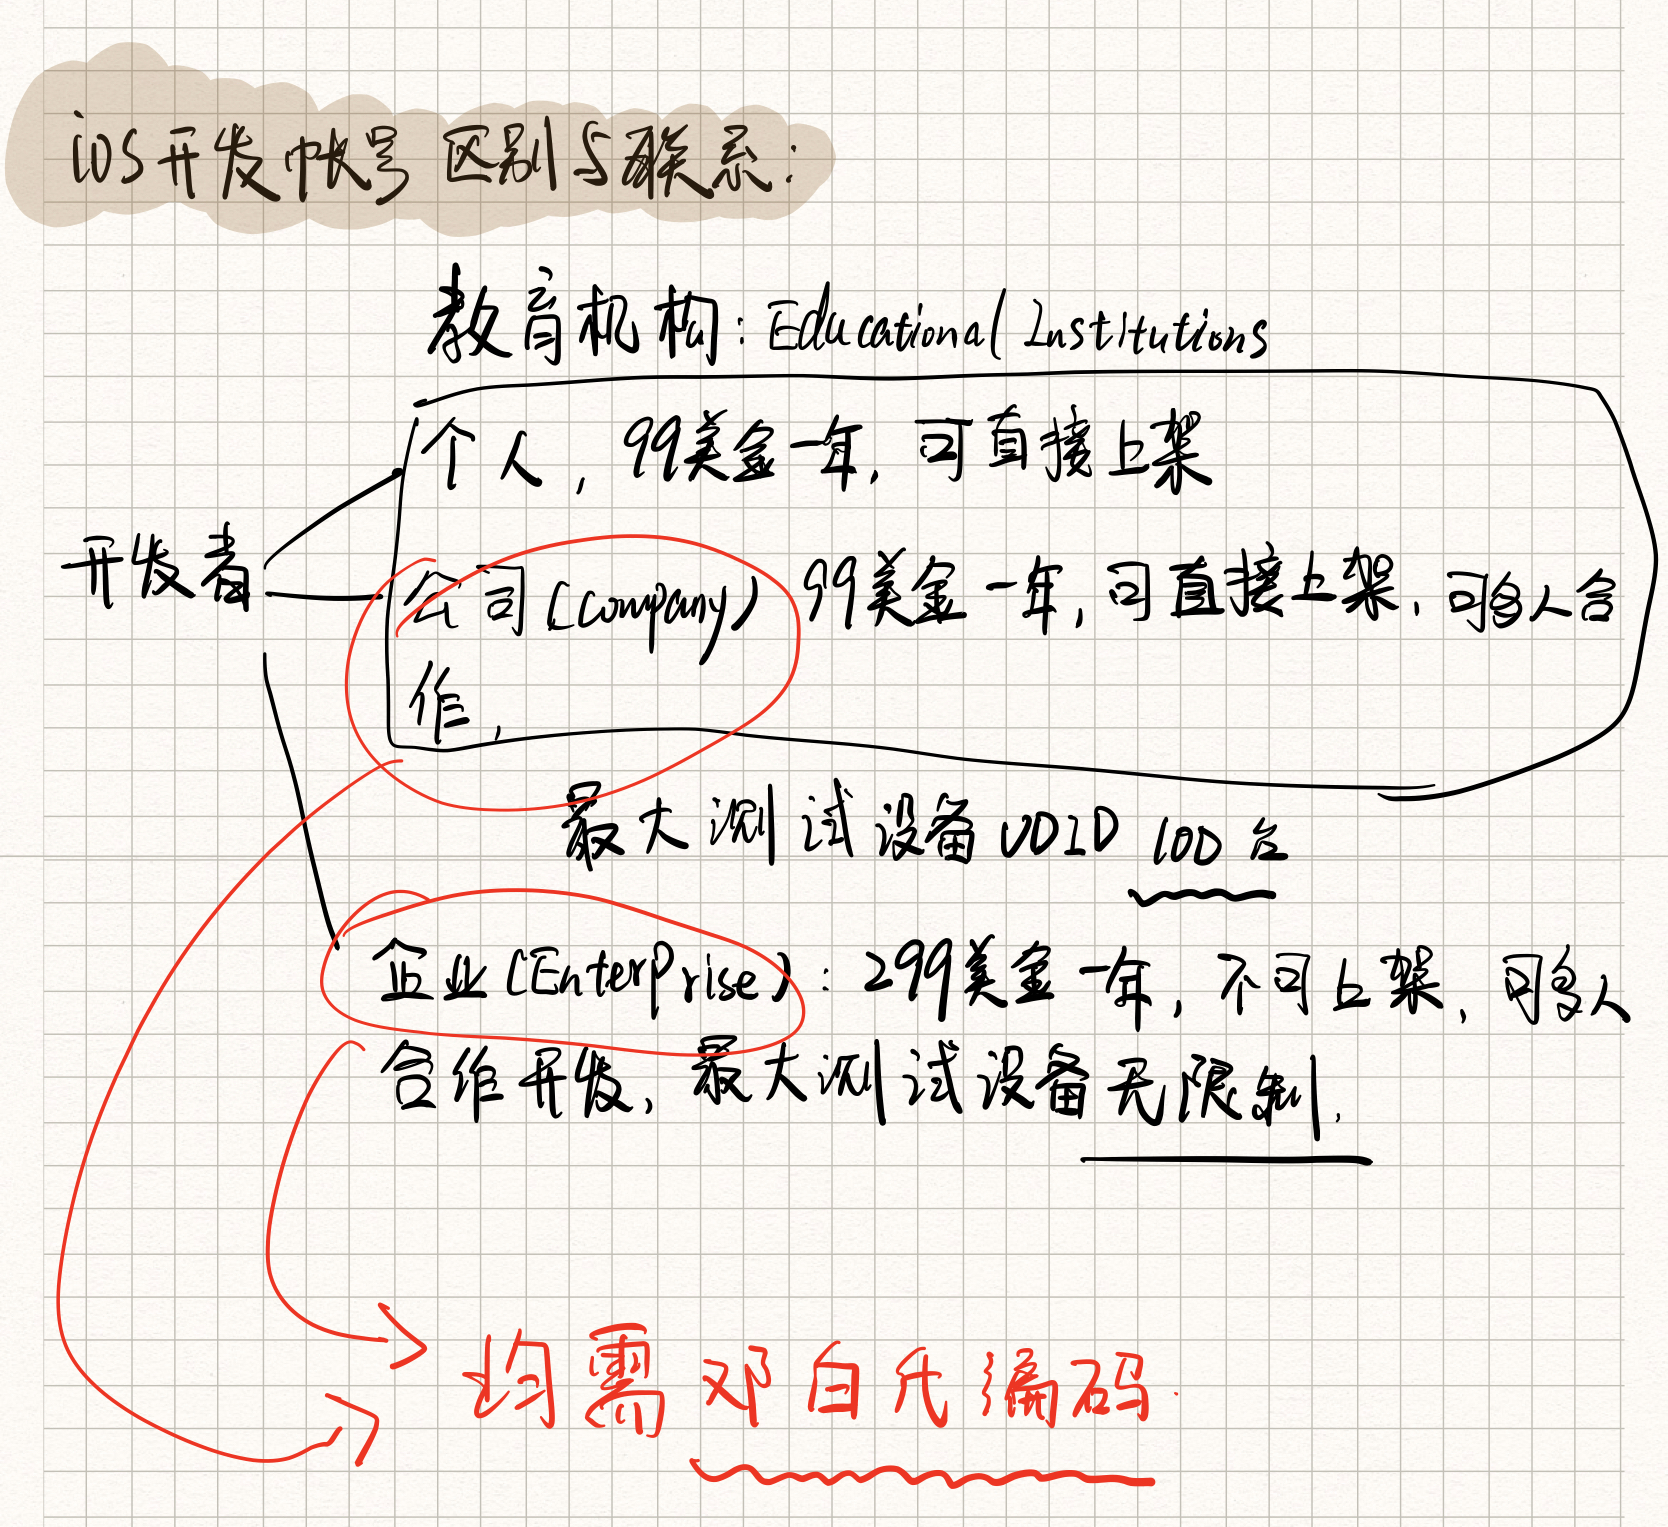 iOS开发帐号 区别与联系:
教育机构: Educational Institutions
个人, 99美金一年, 可直接上架
开发者
公司(Company) 99美金一年, 可直接上架, 可多人合
作,
最大测试设备UDID 100台
企业(Enterprise): 299美金一年, 不可上架, 可多人
合作开发, 最大测试设备无限制.
均需邓白氏编码.